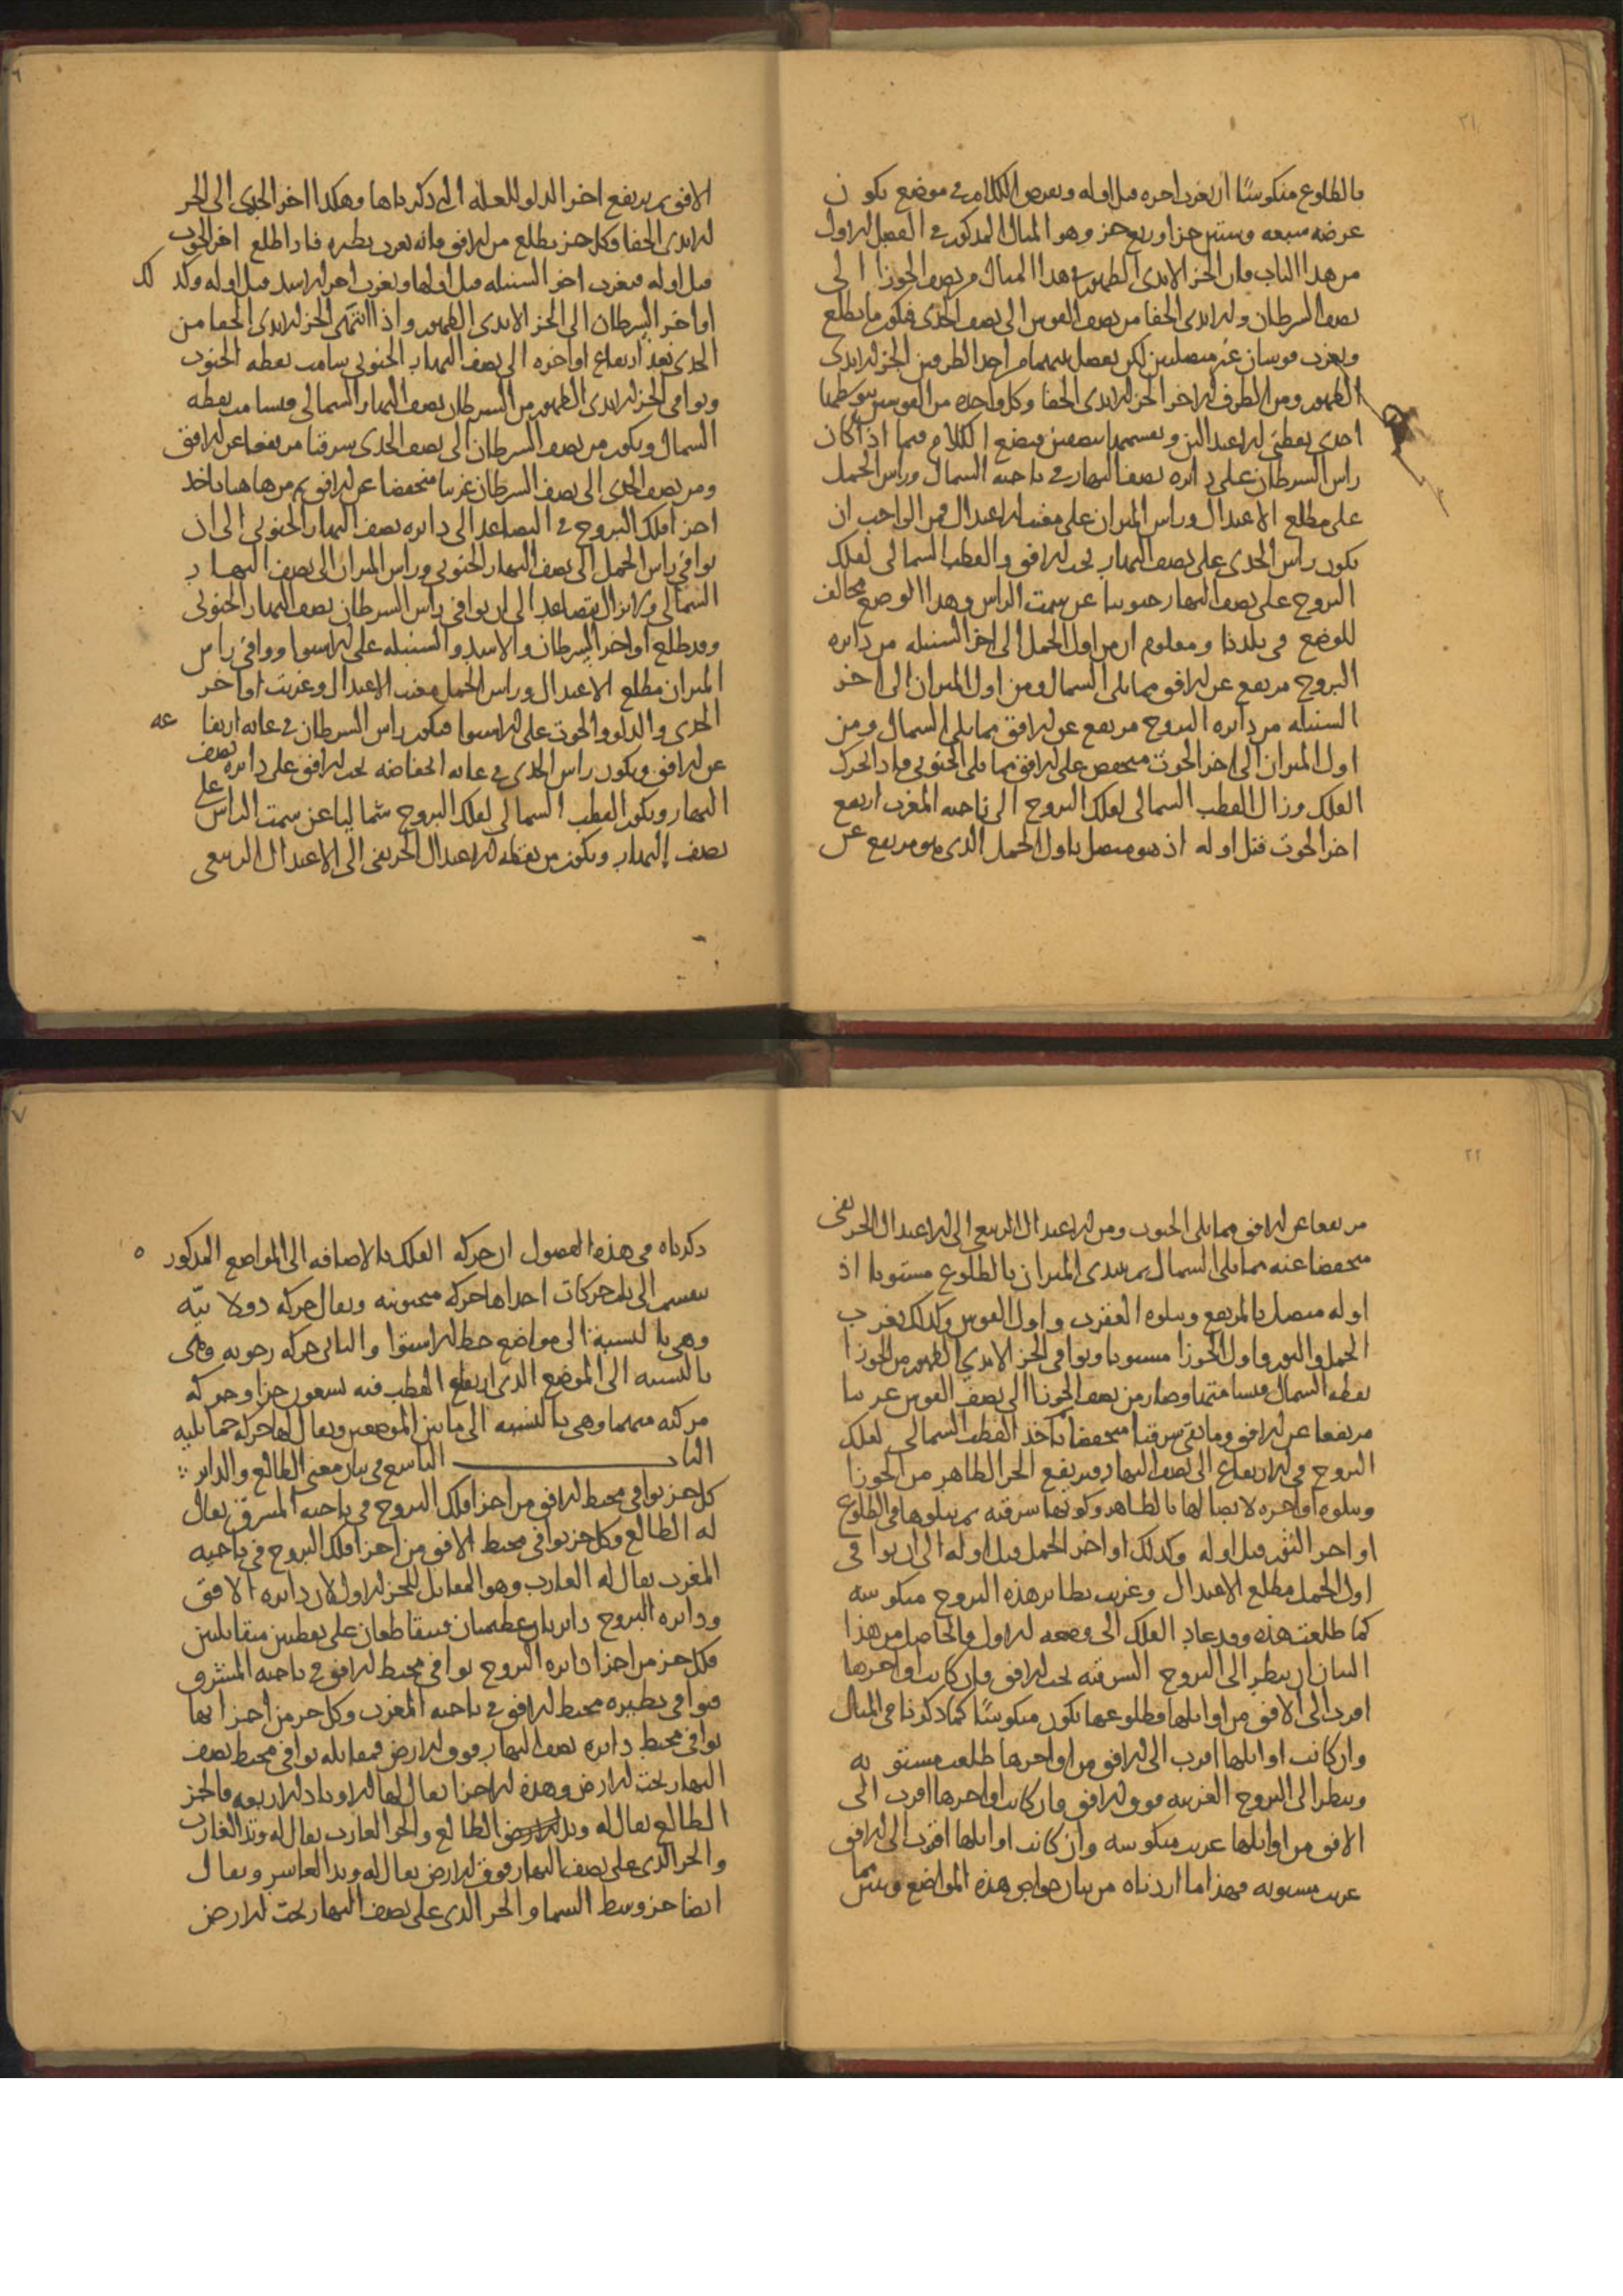 ٢١
بالطلوع منكوسًا ان يغرب اخره قبل اوله ونعرض الكلام في موضع يكون
عرضه سبعه وستين جزا وربع جز وهو المثال المذكور في الفصل الاول
من هذا الباب فان الجز الابدى الظهور في هذا المثال من نصف الجوزا الى
نصف السرطان والابدى الخفا من نصف القوس الى نصف الجدى فيكون ما يطلع
ويغرب قوسان غير متصلتين لكن يفصل بينهما من احد الطرفين الجز الابدى
الظهور ومن الطرف الاخر الجز الابدى الخفا وكل واحده من القوسين يتوسطها
احدى نقطتى الاعتدالين ويقسمها بنصفين فنضع الكلام فيما اذا كان
راس السرطان على دائره نصف النهار في ناحيه الشمال وراس الحمل
على مطلع الاعتدال وراس الميزان على مغيب الاعتدال فمن الواجب ان
يكون راس الجدى على نصف النهار تحت الافق والقطب الشمالى لفلك
البروج على نصف النهار جنوبيا عن سمت الراس وهذا الوضع مخالف
للوضع في بلدنا ومعلوم ان من اول الحمل الى اخر السنبله من دائره
البروج مرتفع عن الافق مما يلى الشمال ومن اول الميزان الى اخر
السنبله من دائره البروج مرتفع عن الافق مما يلى الشمال ومن
اول الميزان الى اخر الحوت منخفض على الافق مما يلى الجنوب فاذا تحرك
الفلك وزال القطب الشمالى لفلك البروج الى ناحيه المغرب ارتفع
اخر الحوت قبل اوله اذ هو متصل باول الحمل الذى هو مرتفع عن
٦
الافق ثم يرتفع اخر الدلو للعله التى ذكرناها وهكذا اخر الجدى الى الجز
الابدى الخفا وكل جز يطلع من الافق فانه يغرب نظيره فاذا طلع اخر الحوت
قبل اوله فيغرب اخر السنبله قبل اولها ويغرب اخر الاسد قبل اوله وكذلك
اواخر السرطان الى الجز الابدى الظهور واذا انتهى الجز الابدى الخفا من
الجدى بعد ارتفاع اواخره الى نصف النهار الجنوبى سامت نقطه الجنوب
ويوافى الجز الابدى الظهور من السرطان نصف النهار الشمالى فيسامت نقطه
الشمال ويكون من نصف السرطان الى نصف الجدى شرقيا مرتفعا عن الافق
ومن نصف الجدى الى نصف السرطان غربيا منخفضا عن الافق ثم من هاهنا ياخذ
اجزا فلك البروج في التصاعد الى دائره نصف النهار الجنوبى الى ان
يوافى راس الحمل الى نصف النهار الجنوبى وراس الميزان الى نصف النهار
الشمالى ولا يزال يتصاعد الى ان يوافى راس السرطان نصف النهار الجنوبى
وقد طلع اواخر السرطان والاسد والسنبله على الاستوا ووافى راس
الميزان مطلع الاعتدال وراس الحمل مغيب الاعتدال وغربت اواخر
الجدى والدلو والحوت على الاستوا فيكون راس السرطان في غايه ارتفاعه
عن الافق ويكون راس الجدى في غايه انخفاضه تحت الافق على دائره نصف
النهار ويكون القطب الشمالى لفلك البروج شماليا عن سمت الراس على
نصف النهار ويكون من نقطه الاعتدال الخريفى الى الاعتدال الربيعى
٢٢
مرتفعا عن الافق مما يلى الجنوب ومن الاعتدال الربيعى الى الاعتدال الخريفى
منخفضا عنه مما يلى الشمال ثم يبتدى الميزان بالطلوع مستويا اذ
اوله متصل بالمرتفع ويتلوه العقرب واول القوس وكذلك يغرب
الحمل والثور واول الجوزا مستويا ويوافى الجز الابدى الظهور من الجوزا
نقطه الشمال فيسامتها وصار من نصف الجوزا الى نصف القوس غربيا
مرتفعا عن الافق وما بقى شرقيا منخفضا فياخذ القطب الشمالى لفلك
البروج في الارتفاع الى نصف النهار فيرتفع الجز الظاهر من الجوزا
ويتلوه اواخره لاتصالها بالظاهر وكونها شرقيه ثم يتلوها في الطلوع
اواخر الثور قبل اوله وكذلك اواخر الحمل قبل اوله الى ان يوافى
اول الحمل مطلع الاعتدال وغربت نظائر هذه البروج منكوسه
كما طلعت هذه وقد عاد الفلك الى وضعه الاول فالحاصل من هذا
البيان ان ينظر الى البروج الشرقيه تحت الافق فان كانت اواخرها
اقرب الى الافق من اوايلها فطلوعها يكون منكوسًا كما ذكرنا في المثال
وان كانت اوايلها اقرب الى الافق من اواخرها طلعت مستويه
وينظر الى البروج الغربيه فوق الافق فان كانت اواخرها اقرب الى
الافق من اوايلها غربت منكوسه وان كانت اوايلها اقرب الى الافق
غربت مستويه فهذا ما اردناه من بيان خواص هذه المواضع وتبين بما
٧
ذكرناه في هذه الفصول ان حركه الفلك بالاضافه الى المواضع المذكوره
ينقسم الى ثلث حركات احداها حركه منصوبه ويقال حركه دولابيّه
وهى بالنسبة الى مواضع خط الاستوا والثانى حركه رحويه وهى
بالنسبه الى الموضع الذى ارتفاع القطب فيه تسعون جزا وحركه
مركبه منهما وهى بالنسبه الى ما بين الموضعين ويقال لها حركه حمايليه
الباب التاسع في بيان معنى الطالع والداير
كل جز يوافى محيط الافق من اجزا فلك البروج في ناحيه المشرق يقال
له الطالع وكل جز يوافى محيط الافق من اجزا فلك البروج في ناحيه
المغرب يقال له الغارب وهو المقابل للجز الاول لان دائره الافق
ودائره البروج دائرتان عظيمتان فيتقاطعان على نقطتين متقابلتين
فكل جز من اجزا دائره البروج يوافى محيط الافق في ناحيه المشرق
فيوافى نظيره محيط الافق في ناحيه المغرب وكل جز من اجزائها
يوافى محيط دائره نصف النهار فوق الارض فمقابله يوافى محيط نصف
النهار تحت الارض وهذه الاجزا يقال لها الاوتاد الاربعه فالجز
الطالع يقال له وتد الطالع والجز الغارب يقال له وتد الغارب
والجز الذى على نصف النهار فوق الارض يقال له وتد العاشر ويقال
ايضا جز وسط السما والجز الذى على نصف النهار تحت الارض